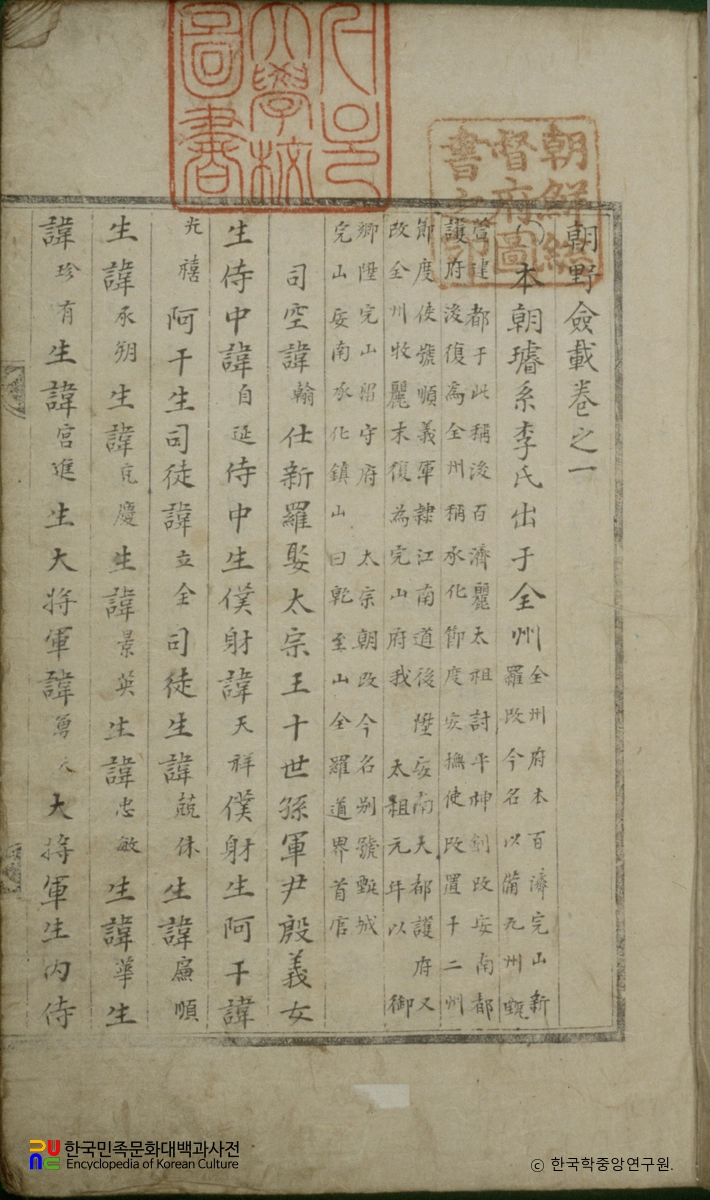 朝野僉載卷之一
本朝璿系李氏出于全州全州府本百濟完山新
羅改今名以備九州甄
萱建都于此稱後百濟麗太祖討平神劒改安南都
護府後復爲全州稱承化節度安撫使改置十二州
節度使號順義軍隷江南道後陞安南大都護府又
改全州牧麗末復為完山府我 太祖元年以 御
鄉陞完山留守府 太宗朝改今名别號甄城
完山安南承化鎮山曰乾至山全羅道界首官
司空諱翰仕新羅娶太宗王十世孫軍尹殷義女
生侍中諱自延侍中生僕射諱天祥僕射生阿干諱
光禧阿干生司徒諱立全司徒生諱兢休生諱廉順
生諱承朔生諱充慶生諱景英生諱忠敏生諱華生
諱珍有生諱宮進生大將軍諱勇夫大將軍生內侍
朝鮮總
督府圖
書之印
大學校
圖書
한국민족문화대백과사전
Encyclopedia of Korean Culture
© 한국학중앙연구원.